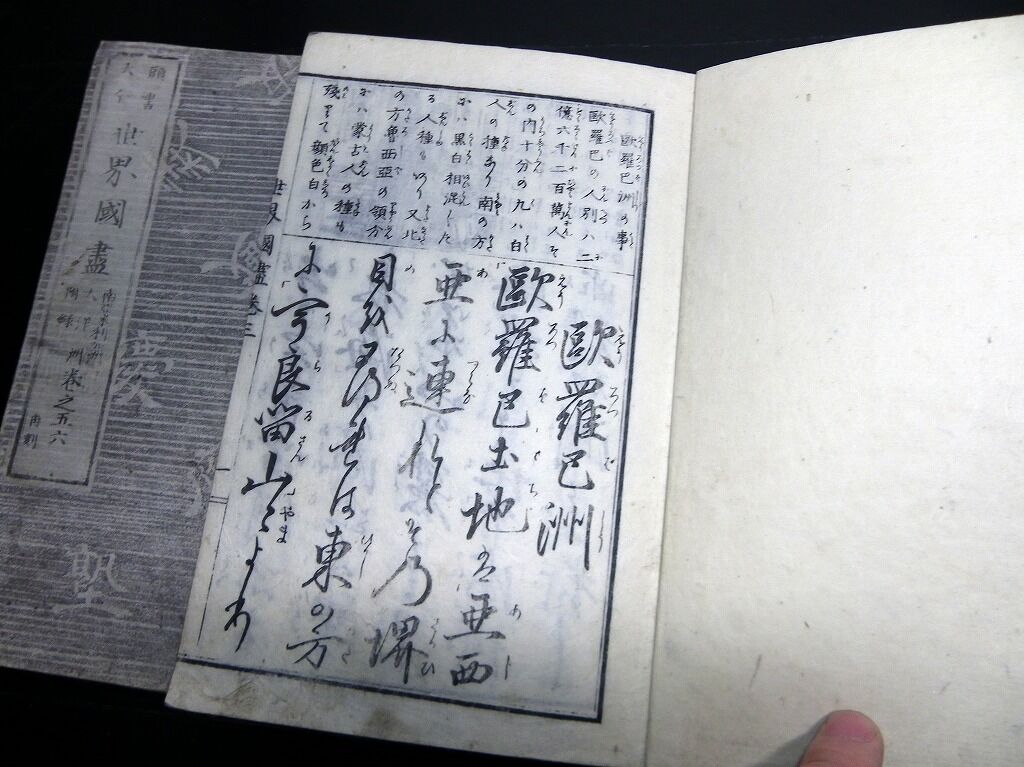 歐羅巴洲の事
歐羅巴の人別ハ二
億六千二百萬人そ
の内十分の九ハ白
人の種あり南の方
ふハ黒白相混した
る人種もあり又北
の方魯西亞の領分
ふハ蒙古人の種も
殘りて顔色白から
歐羅巴洲
歐羅巴土地は亜西
亜に連れとその堺
目を尋れは東の方
に宇良留山〻より
世界國盡 卷三
頭書
大全
世界國盡
大洋洲
附録
卷之五六
再刻